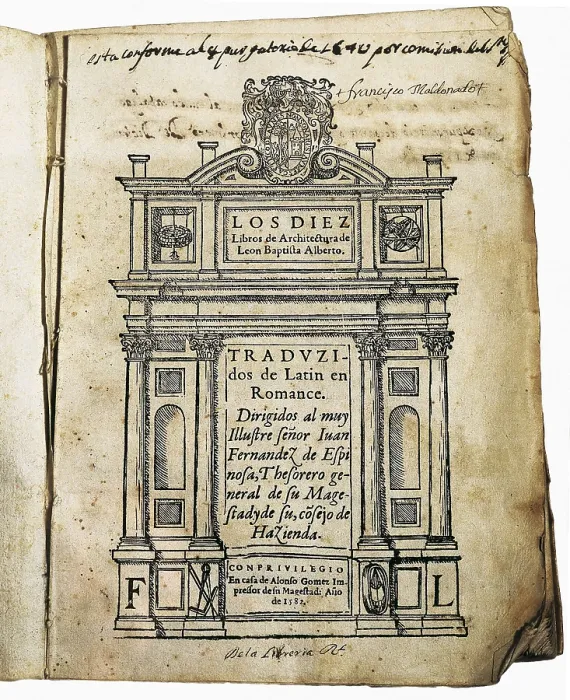 esta conforme al expurgatorio de 1640 por comision del sto
francisco Maldonado
LOS DIEZ
Libros de Architectura de
Leon Baptiſta Alberto.
TRADVZI-
dos de Latin en
Romance.
Dirigidos al muy
Illuſtre ſeñor Iuan
Fernandez de Eſpi
noſa, Theſorero ge-
neral de ſu Mage-
ſtad y de ſu, cõſejo de
Hazienda.
CON PRIVILEGIO
En caſa de Alonſo Gomez Im-
preſſor de ſu Mageſtad: Año
de 1582.
F L
De la Libreria Rl.